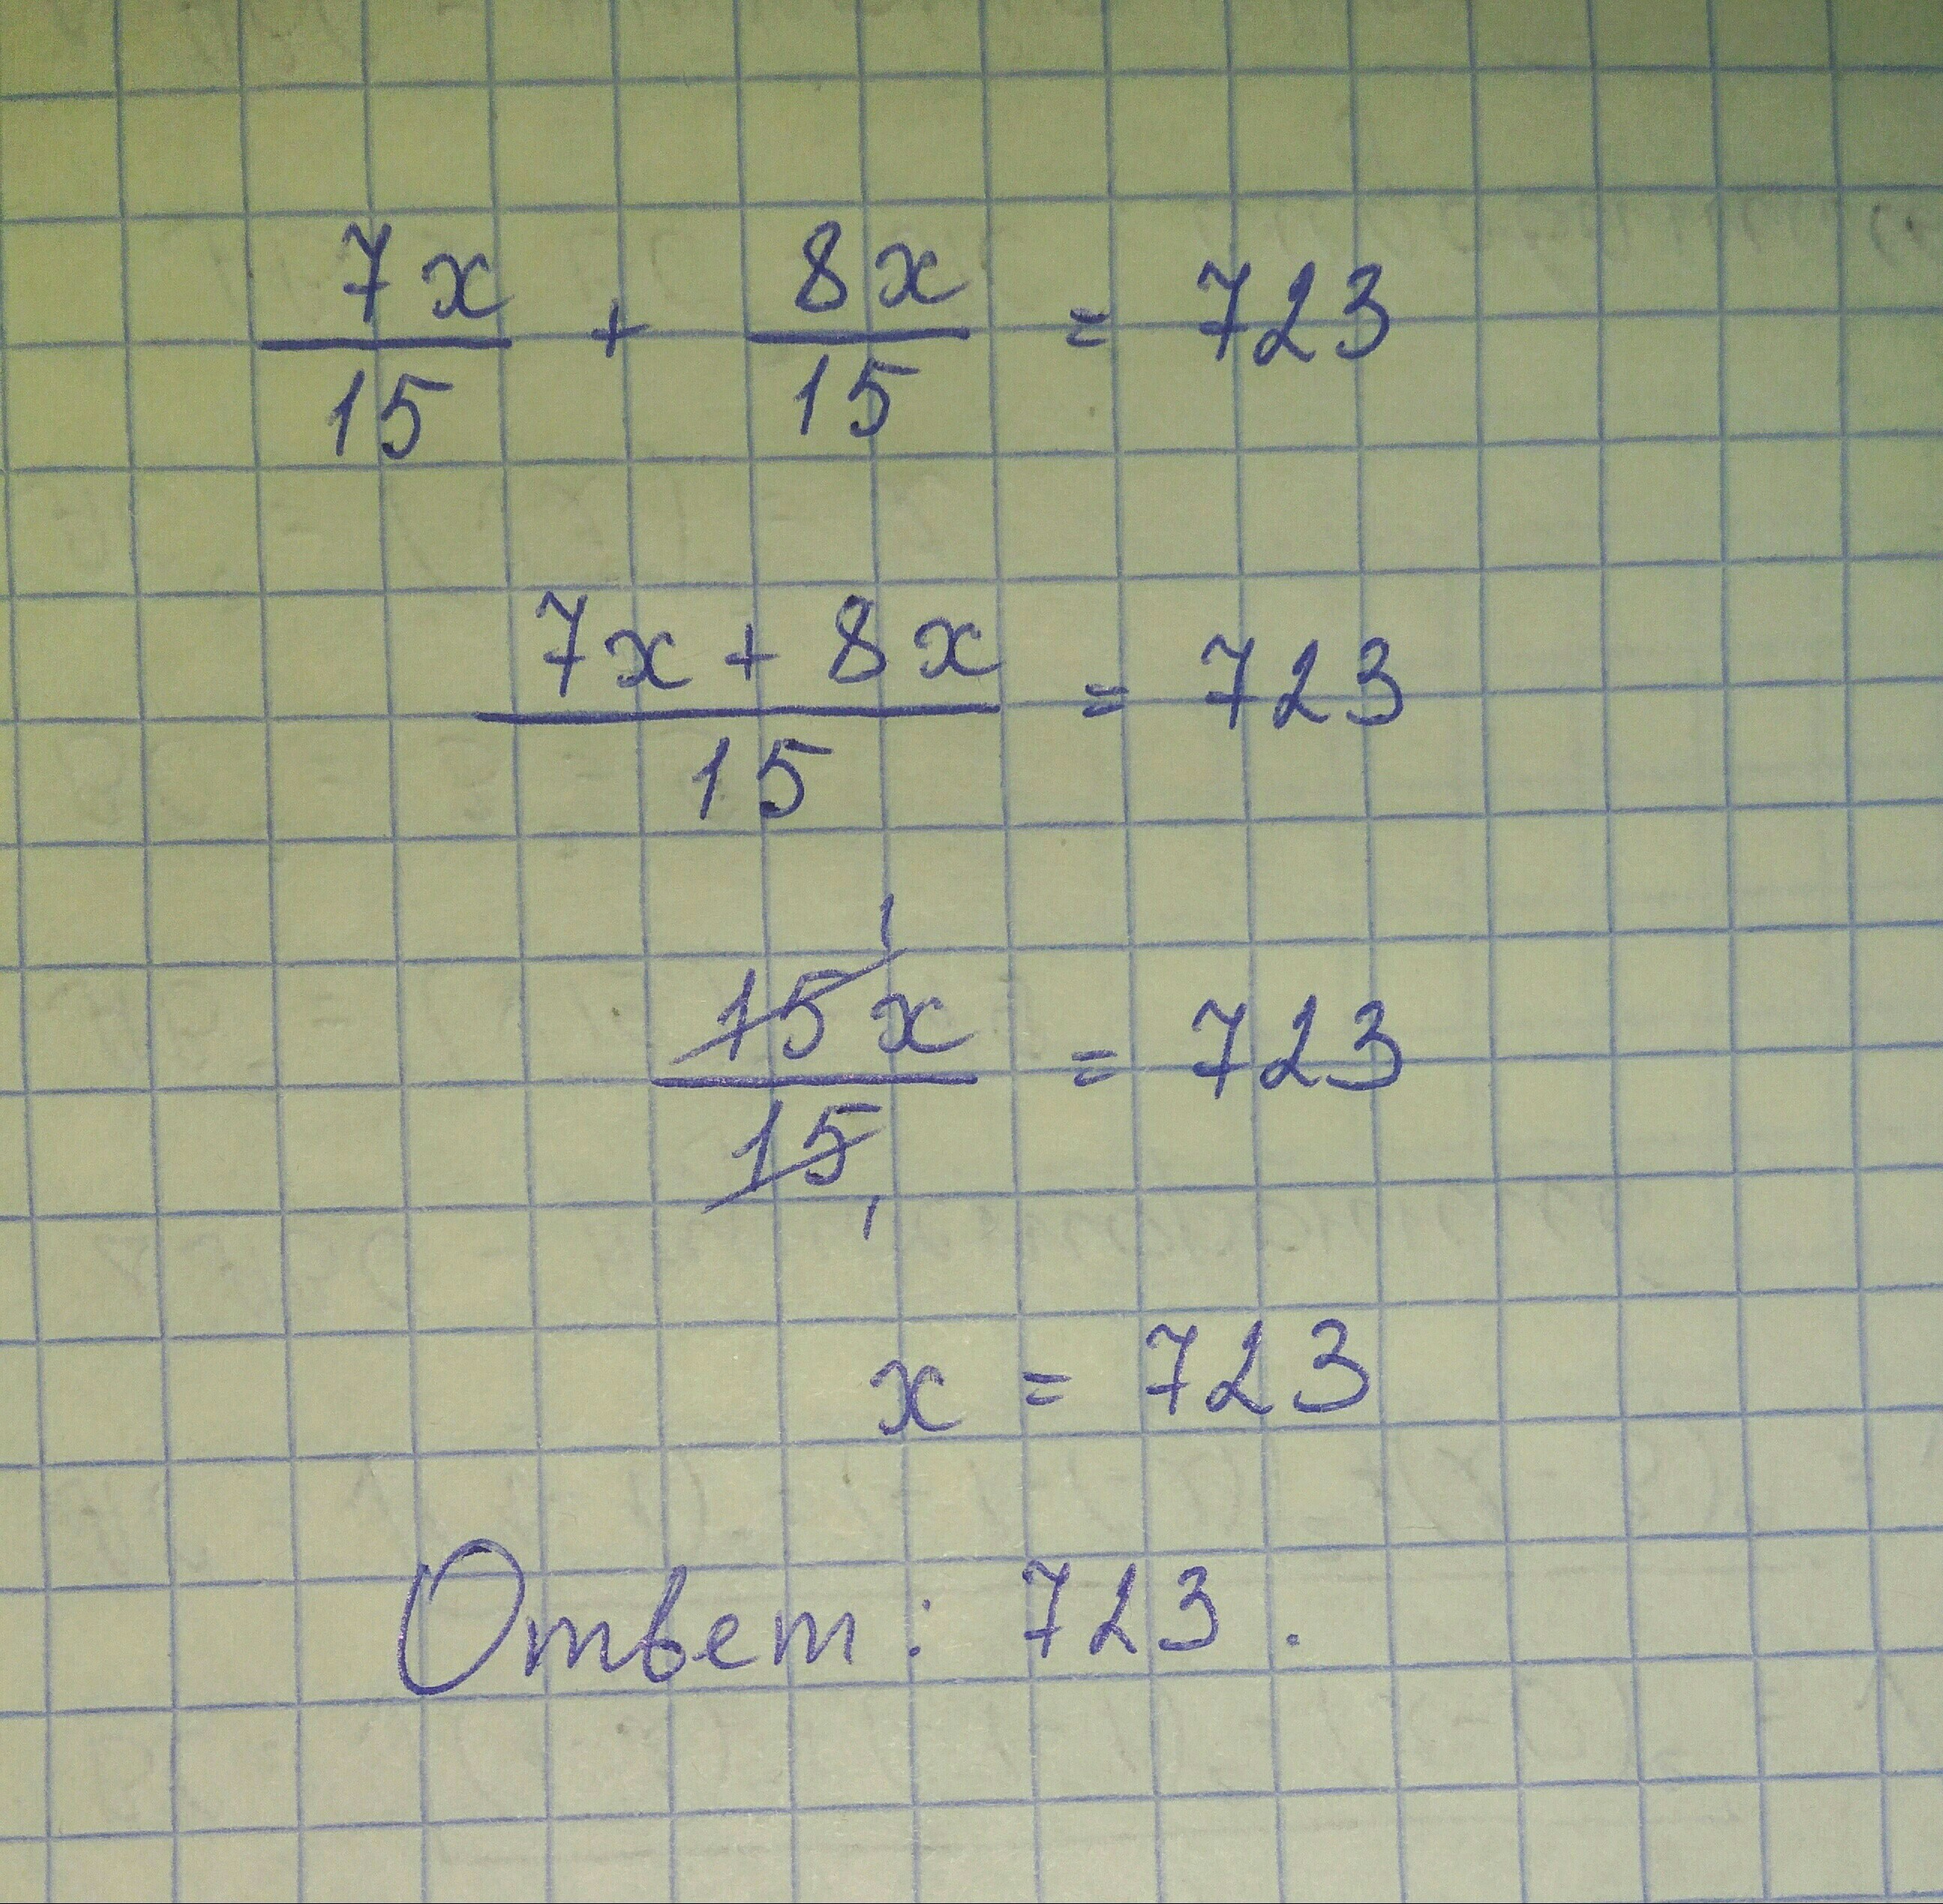 7x/15 + 8x/15 = 723
7x + 8x/15 = 723
15x/15 = 723
x = 723
Ответ: 723.